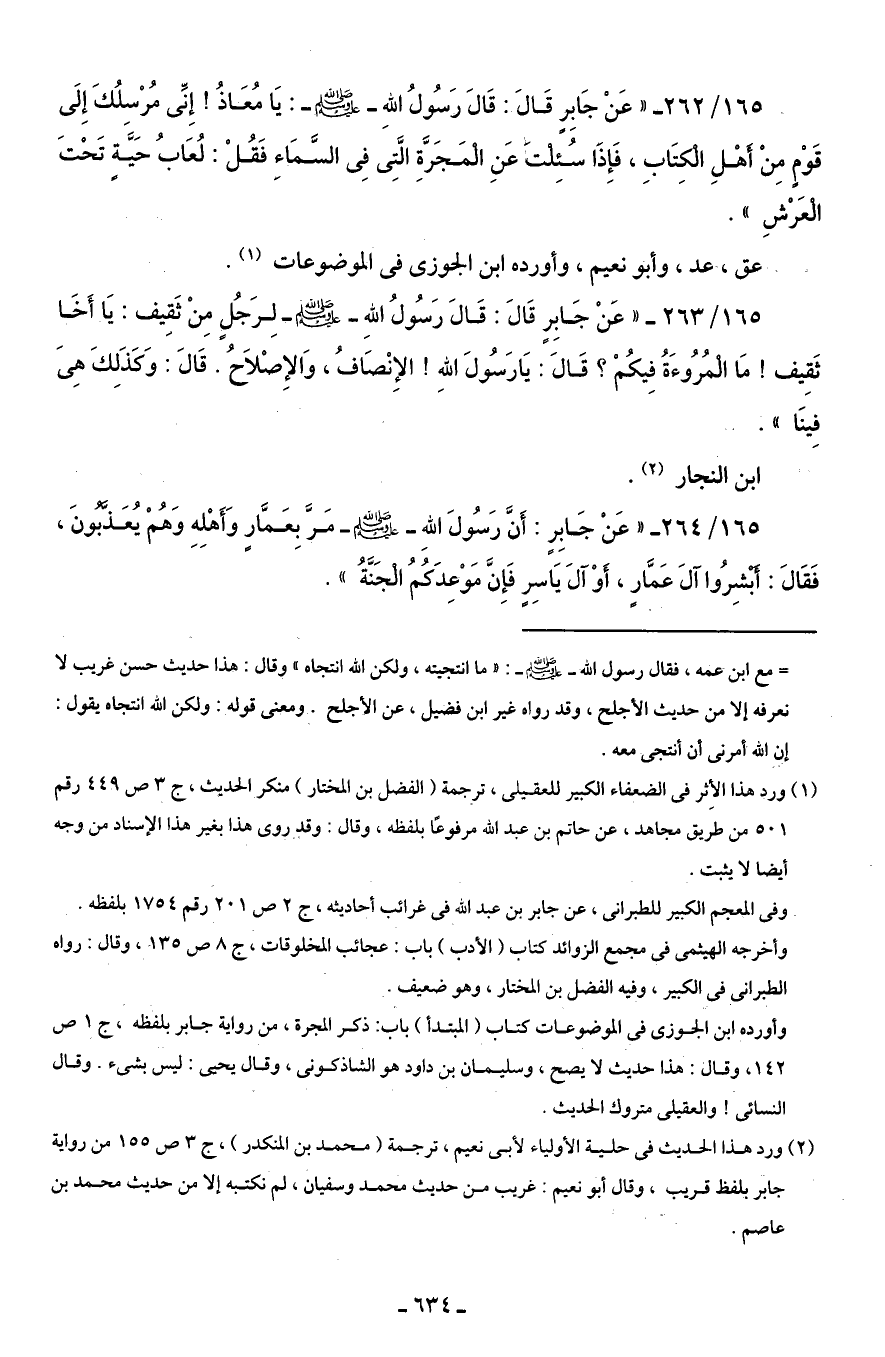 ١٦٥/ ٢٦٢ـ « عَنْ جَابِرٍ قَالَ : قَالَ رَسُولُ اللهِ ـ ﷺ ـ : يَا مُعَاذُ ! إِنِّى مُرْسِلُكَ إِلَى
قَوْمٍ مِنْ أَهْلِ الْكِتَابِ ، فَإِذَا سُئِلْتَ عَنِ الْمَجَرَّةِ الَّتِى فِى السَّمَاءِ فَقُلْ : لُعَابُ حَيَّةٍ تَحْتَ
الْعَرْشِ » .
عق ، عد ، وأبو نعيم ، وأورده ابن الجوزى فى الموضوعات (١) .
١٦٥/ ٢٦٣ ـ « عَنْ جَابِرٍ قَالَ : قَالَ رَسُولُ اللهِ ـ ﷺ ـ لِرَجُلٍ مِنْ ثَقِيف : يَا أَخَا
ثَقِيف ! مَا الْمُرُوءَةُ فِيكُمْ ؟ قَالَ : يَارَسُولَ اللهِ ! الإِنْصَافُ ، وَالإِصْلَاحُ . قَالَ : وَكَذَلِكَ هِىَ
فِينَا » .
ابن النجار (٢) .
١٦٥/ ٢٦٤ـ « عَنْ جَابِرٍ : أَنَّ رَسُولَ اللهِ ـ ﷺ ـ مَرَّ بِعَمَّارٍ وَأَهْلِهِ وَهُمْ يُعَذَّبُونَ ،
فَقَالَ : أَبْشِرُوا آلَ عَمَّارٍ ، أَوْ آلَ يَاسِرٍ فَإِنَّ مَوْعِدَكُمُ الْجَنَّةُ » .
= مع ابن عمه ، فقال رسول الله ـ ﷺ ـ : « ما انتجيته ، ولكن الله انتجاه » وقال : هذا حديث حسن غريب لا
نعرفه إلا من حديث الأجلح ، وقد رواه غير ابن فضيل ، عن الأجلح . ومعنى قوله : ولكن الله انتجاه يقول :
إن الله أمرنى أن أنتجى معه .
(١) ورد هذا الأثر فى الضعفاء الكبير للعقيلى ، ترجمة ( الفضل بن المختار ) منكر الحديث ، ج ٣ ص ٤٤٩ رقم
٥٠١ من طريق مجاهد ، عن حاتم بن عبد الله مرفوعًا بلفظه ، وقال : وقد روى هذا بغير هذا الإسناد من وجه
أيضا لا يثبت .
وفى المعجم الكبير للطبرانى ، عن جابر بن عبد الله فى غرائب أحاديثه ، ج ٢ ص ٢٠١ رقم ١٧٥٤ بلفظه .
وأخرجه الهيثمى فى مجمع الزوائد كتاب ( الأدب ) باب : عجائب المخلوقات ، ج ٨ ص ١٣٥ ، وقال : رواه
الطبرانى فى الكبير ، وفيه الفضل بن المختار ، وهو ضعيف .
وأورده ابن الجوزى فى الموضوعات كتاب ( المبتدأ ) باب: ذكر المجرة ، من رواية جابر بلفظه ، ج ١ ص
١٤٢، وقال : هذا حديث لا يصح ، وسليمان بن داود هو الشاذكونى ، وقال يحيى : ليس بشىء . وقال
النسائى ! والعقيلى متروك الحديث .
(٢) ورد هذا الحديث فى حلية الأولياء لأبى نعيم ، ترجمة ( محمد بن المنكدر ) ، ج ٣ ص ١٥٥ من رواية
جابر بلفظ قريب ، وقال أبو نعيم : غريب من حديث محمد وسفيان ، لم نكتبه إلا من حديث محمد بن
عاصم .
ـ ٦٣٤ ـ